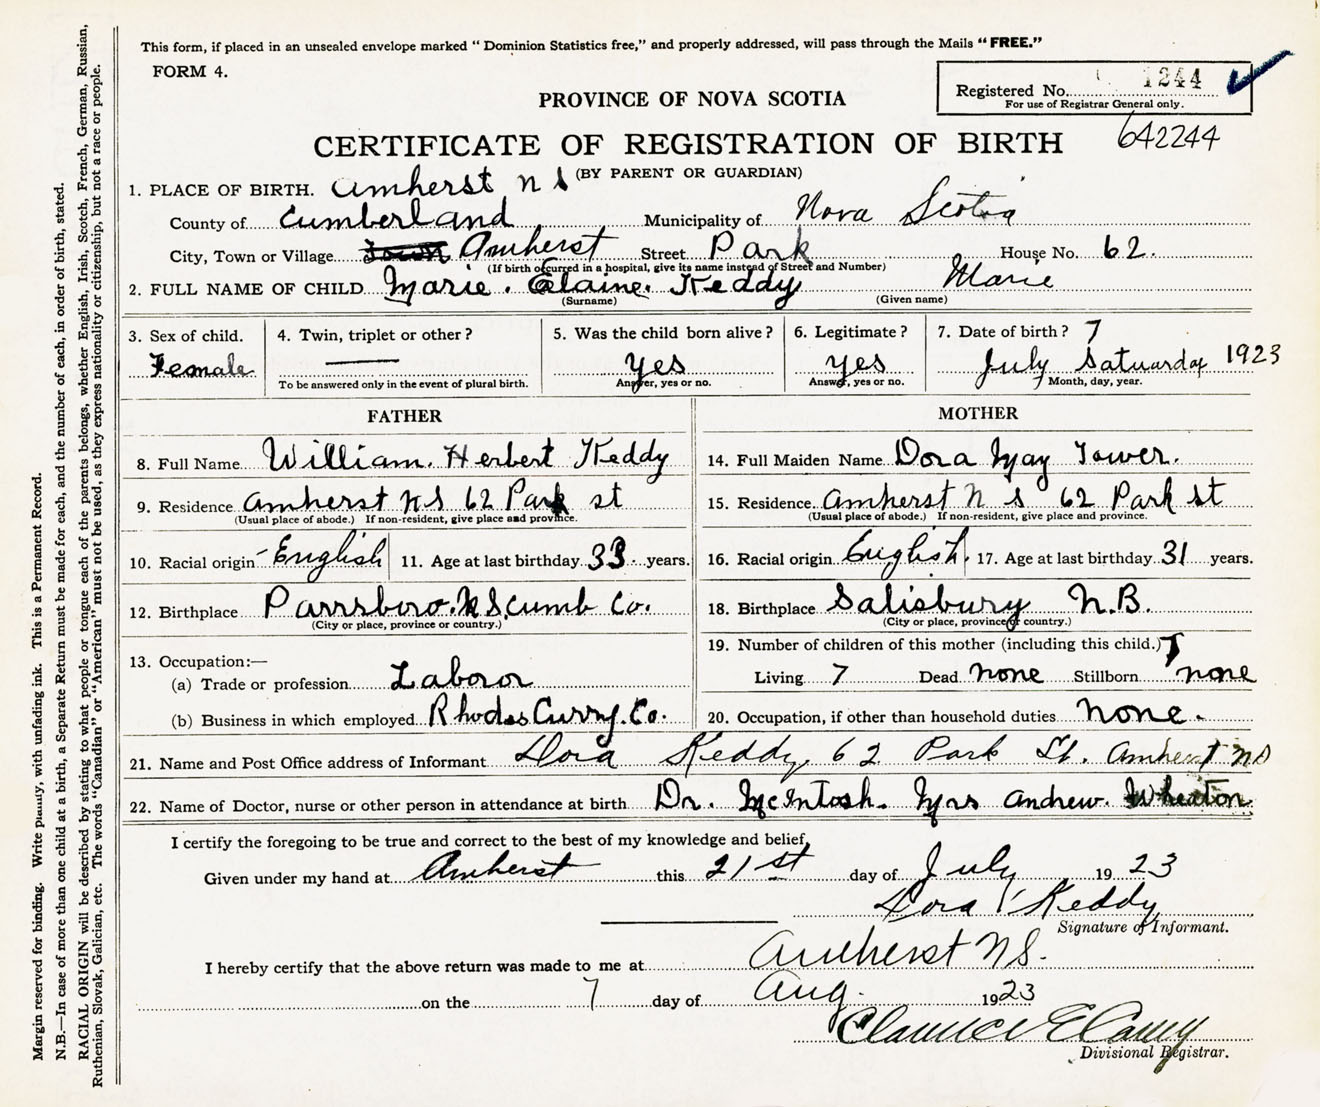 This form, if placed in an unsealed envelope marked "Dominion Statistics free," and properly addressed, will pass through the Mails "FREE."
FORM 4.
Registered No. 1244
For use of Registrar General only.
PROVINCE OF NOVA SCOTIA
642244
CERTIFICATE OF REGISTRATION OF BIRTH
(BY PARENT OR GUARDIAN)
1. PLACE OF BIRTH. Amherst n s
County of Cumberland Municipality of Nova Scotia
City, Town or Village Town Amherst Street Park House No. 62.
(If birth occurred in a hospital, give its name instead of Street and Number)
2. FULL NAME OF CHILD Marie. Elaine. Keddy Marie
(Surname) (Given name)
3. Sex of child. 4. Twin, triplet or other? 5. Was the child born alive? 6. Legitimate? 7. Date of birth? 7
Female — yes yes July Satuarday 1923
To be answered only in the event of plural birth. Answer, yes or no. Answer, yes or no. Month, day, year.
FATHER
8. Full Name William. Herbert Keddy
9. Residence Amherst N S 62 Park st
(Usual place of abode.) If non-resident, give place and province.
10. Racial origin English 11. Age at last birthday 33 years.
12. Birthplace Parrsboro. N S. Cumb Co.
(City or place, province or country.)
13. Occupation:—
(a) Trade or profession Laboror
(b) Business in which employed Rhodes Curry. Co.
MOTHER
14. Full Maiden Name Dora May Tower.
15. Residence Amherst N S 62 Park st
(Usual place of abode.) If non-resident, give place and province.
16. Racial origin English. 17. Age at last birthday 31 years.
18. Birthplace Salisbury N.B.
(City or place, province or country.)
19. Number of children of this mother (including this child.) 7
Living 7 Dead none Stillborn none
20. Occupation, if other than household duties none.
21. Name and Post Office address of Informant Dora Keddy, 62 Park St. Amherst NS
22. Name of Doctor, nurse or other person in attendance at birth Dr. McIntosh. Mrs Andrew. Wheaton
I certify the foregoing to be true and correct to the best of my knowledge and belief,
Given under my hand at Amherst this 21st day of July 1923
Dora Keddy
Signature of Informant.
I hereby certify that the above return was made to me at Amherst NS.
on the 7 day of Aug. 1923
Clarence E Casey
Divisional Registrar.
Margin reserved for binding. Write plainly, with unfading ink. This is a Permanent Record.
N.B.—In case of more than one child at a birth, a Separate Return must be made for each, and the number of each, in order of birth, stated.
RACIAL ORIGIN will be described by stating to what people or tongue each of the parents belongs, whether English, Irish, Scotch, French, German, Russian,
Ruthenian, Slovak, Galician, etc. The words "Canadian" or "American" must not be used, as they express nationality or citizenship, but not a race or people.